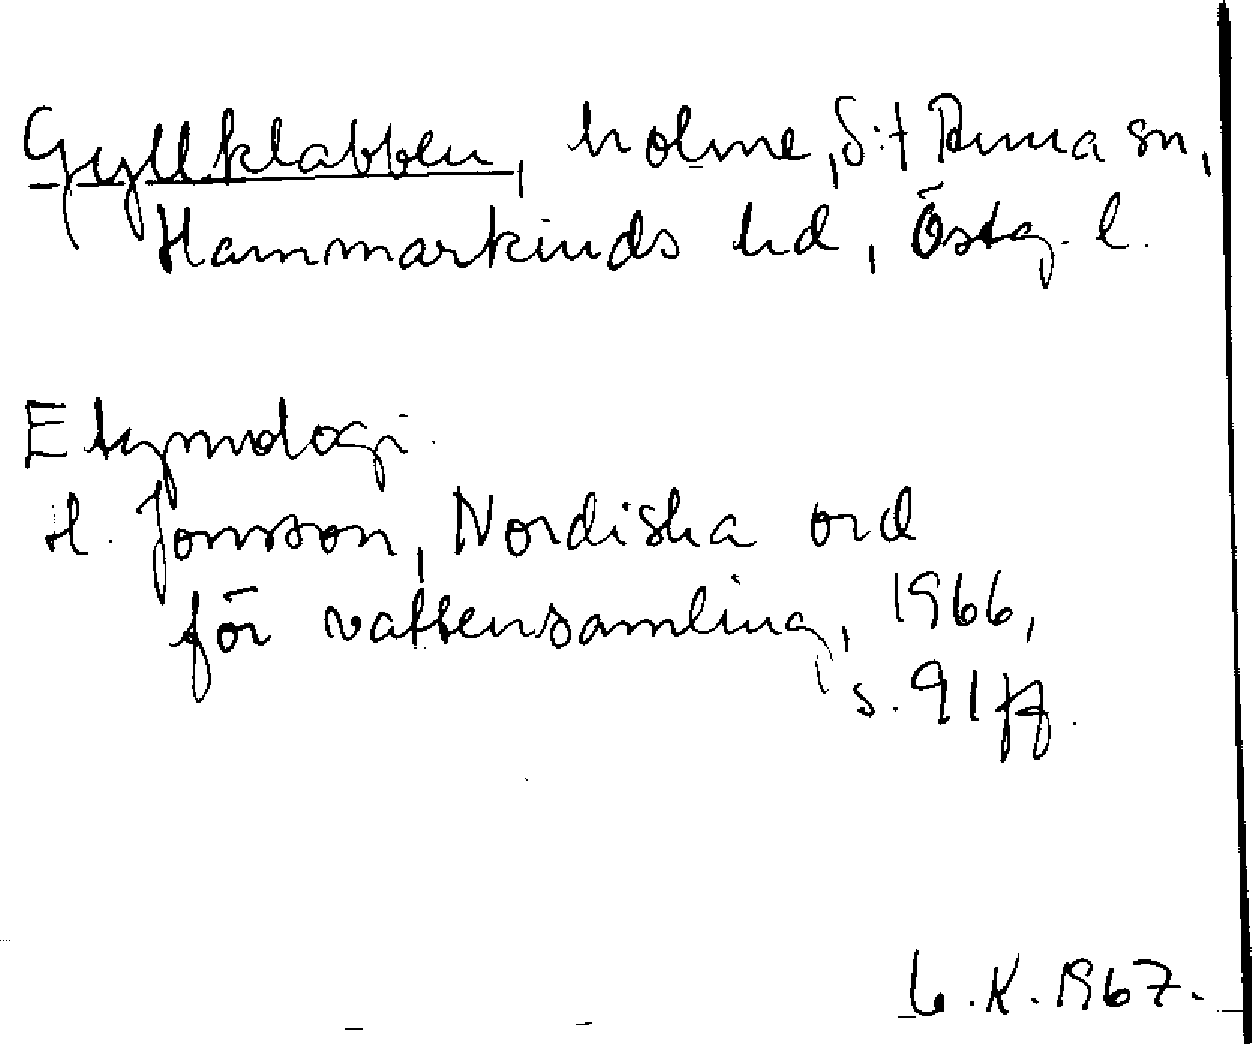 Gyllklabben, holme, S:t Anna sn,
Hammarkinds hd, Östg. l.
Etymologi
H. Jonsson, Nordiska ord
för vattensamling, 1966,
s. 91 ff.
G.K. 1967.